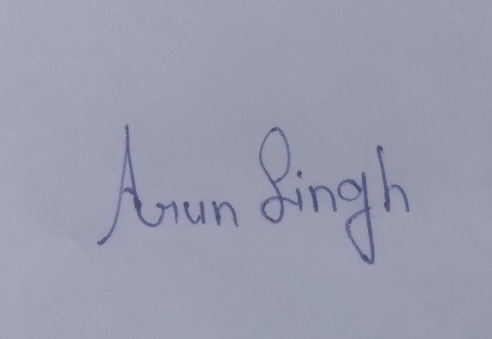 Arun Singh